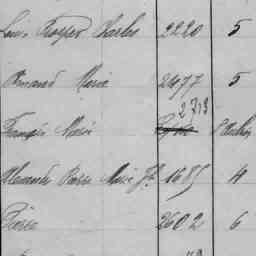 Louis Prosper Charles 2220 5
Armand Marie 2477 5
2713
François Marie
Alexandre Pierre Marie Jh 1685 4
Pierre 2602 6